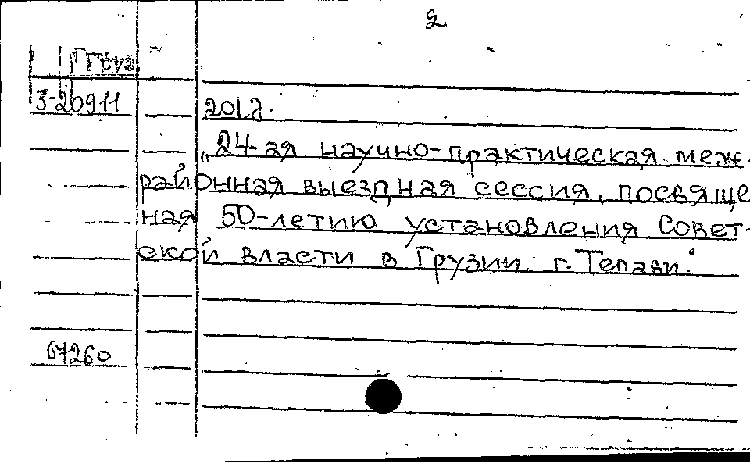 2
3-20911
201 გ.
„24-ая научно-практическая меж-
районная выездная сессия, посвяще
ная 50-летию установления Совет-
ской власти в Грузии г. Телави."
67260